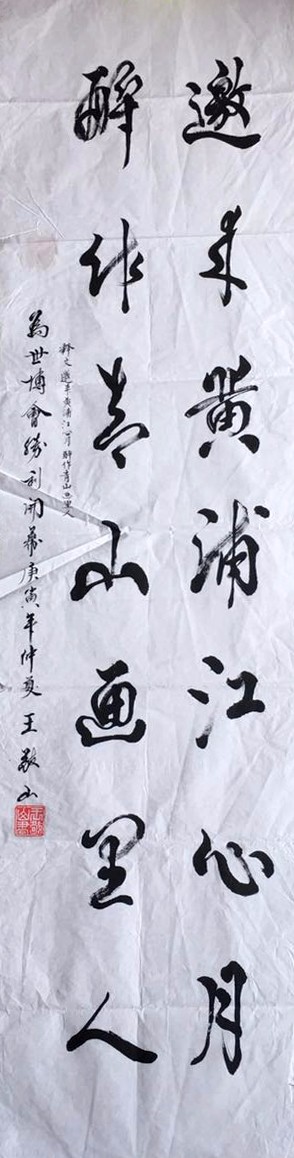 邀来黄浦江心月
醉作青山画里人
释文邀来黄浦江心月醉作青山画里人
為世博會勝利開幕庚寅年仲夏王敬山